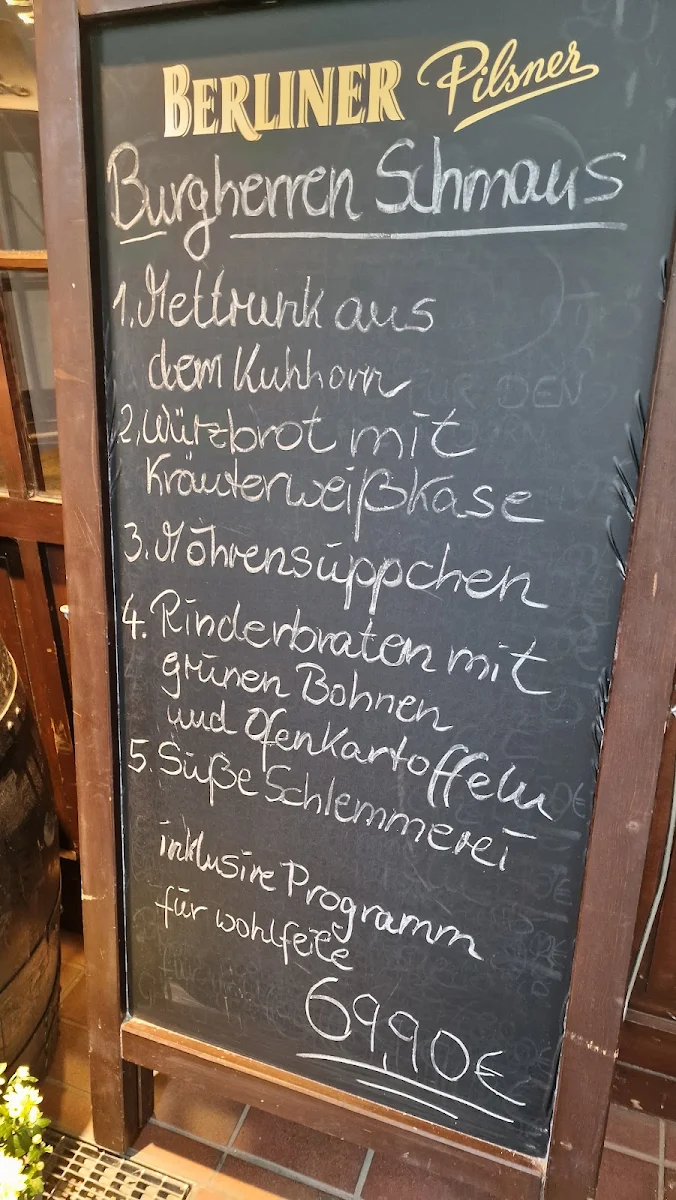 BERLINER Pilsner
Burgherren Schmaus
1. Mettrunk aus
dem Kuhhorn
2. Würzbrot mit
Kräuterweißkäse
3. Möhrensüppchen
4. Rinderbraten mit
grünen Bohnen
und Ofenkartoffeln
5. Süße Schlemmerei
inklusive Programm
für wohlfeile
69,90€